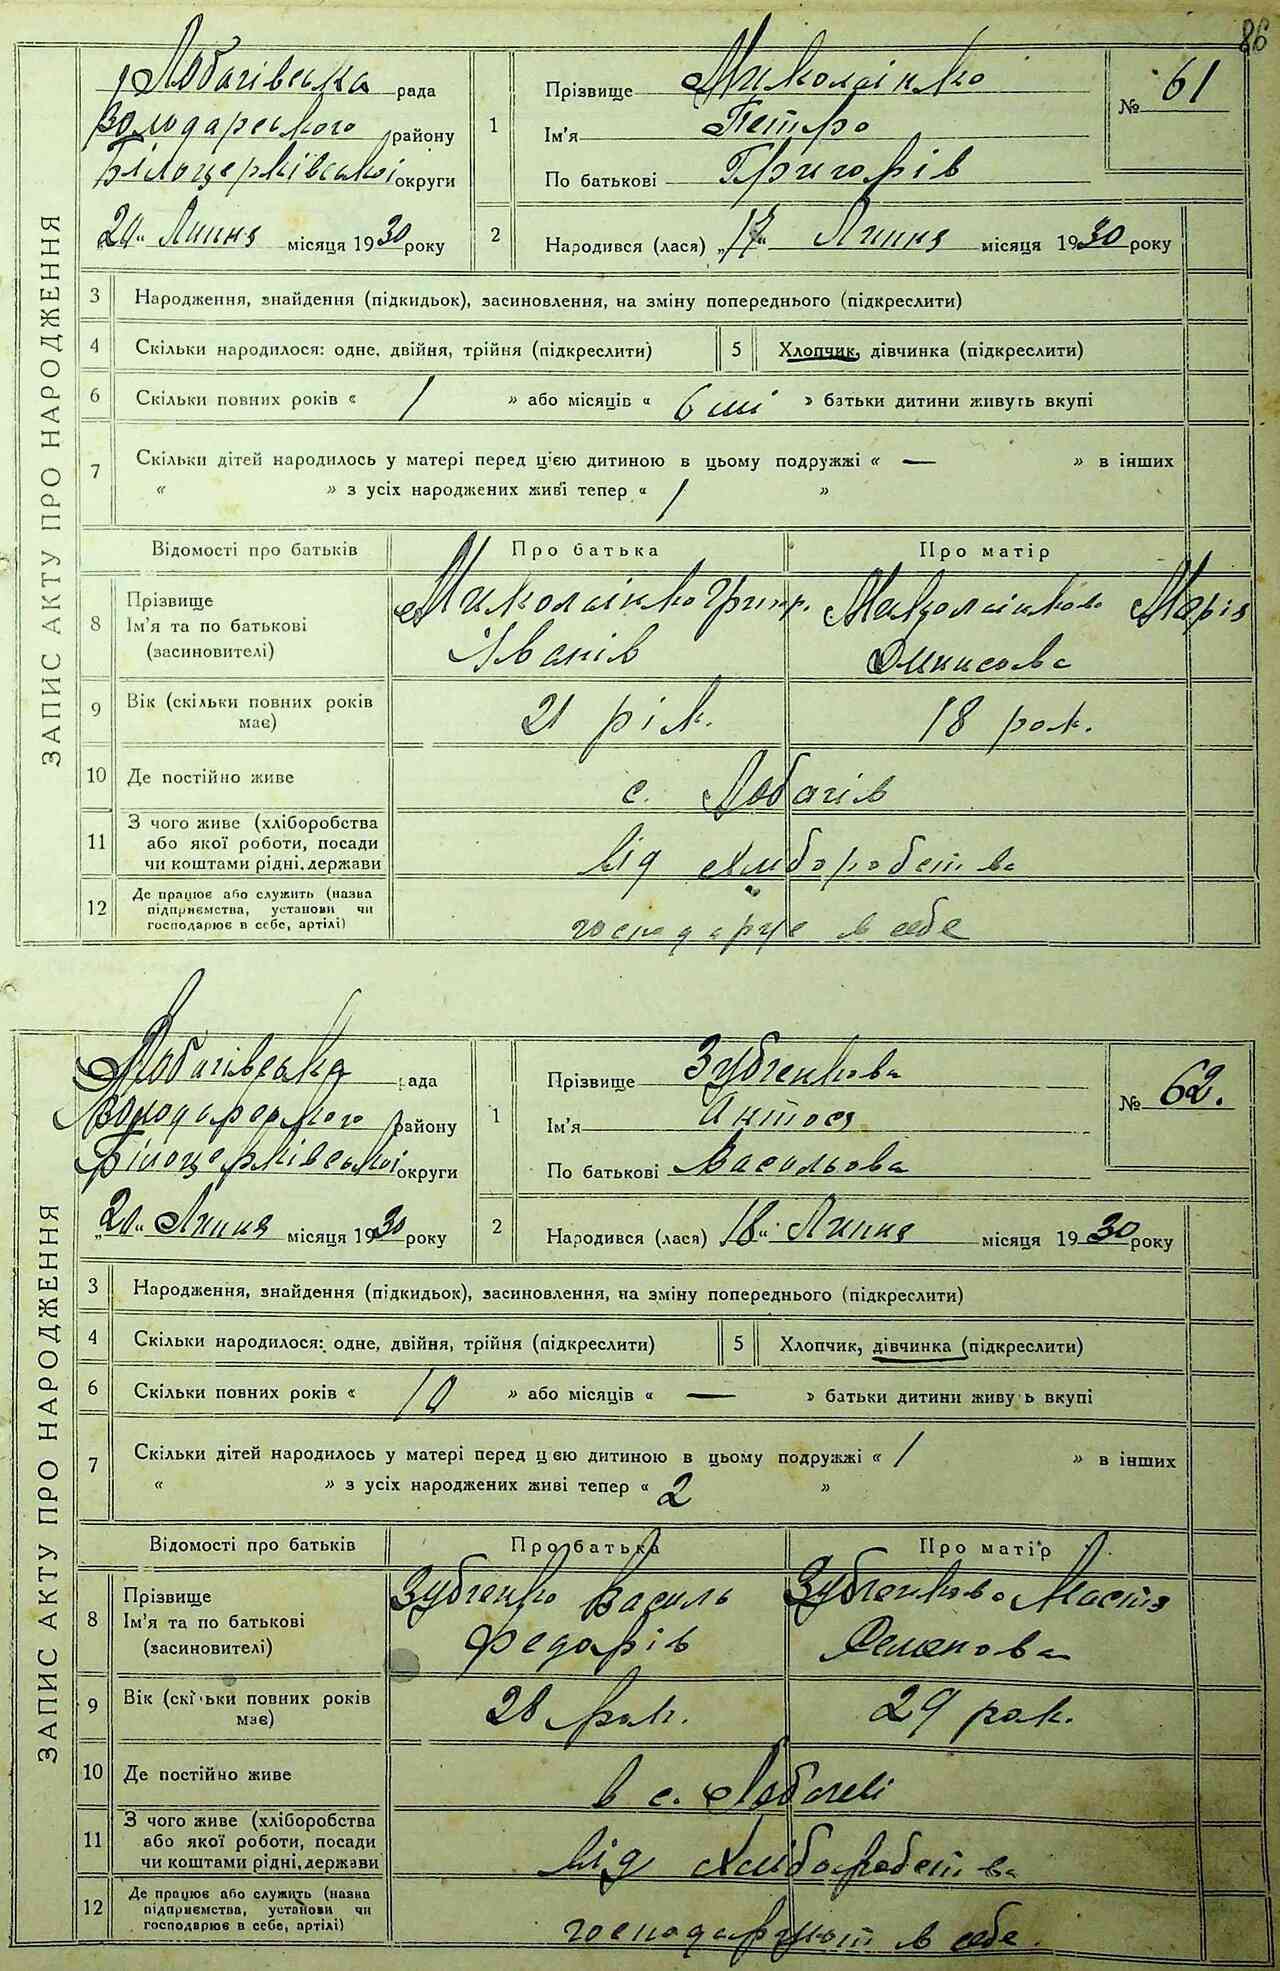 86
ЗАПИС АКТУ ПРО НАРОДЖЕННЯ
Лобачівська рада
Володарського району
Білоцерківської округи
„20“ Липня місяця 1930 року
1
Прізвище Миколаінко
Ім'я Петро
По батькові Григорів
№ 61
2
Народився (лася) „17“ Липня місяця 1930 року
3 Народження, знайдення (підкидьок), засиновлення, на зміну попереднього (підкреслити)
4 Скільки народилося: одне, двійня, трійня (підкреслити) 5 Хлопчик, дівчинка (підкреслити)
6 Скільки повних років « 1 » або місяців « 6 міс » батьки дитини живуть вкупі
7 Скільки дітей народилось у матері перед цією дитиною в цьому подружжі « — » в інших
« » з усіх народжених живі тепер « 1 »
Відомості про батьків Про батька Про матір
8 Прізвище
Ім'я та по батькові
(засиновителі)
Миколаінко Григор.
Іванів
Марія
Денисова
9 Вік (скільки повних років має) 21 рік. 18 рок.
10 Де постійно живе с. Лобачів
11 З чого живе (хліборобства
або якої роботи, посади
чи коштами рідні, держави
від хліборобства
12 Де працює або служить (назва
підприємства, установи чи
господарює в себе, артілі)
господарює в себе
ЗАПИС АКТУ ПРО НАРОДЖЕННЯ
Лобачівська рада
Володарського району
Білоцерківської округи
„20“ Липня місяця 1930 року
1
Прізвище Зубченкова
Ім'я
По батькові Васильова
№ 62.
2
Народився (лася) 18“ Липня місяця 1930 року
3 Народження, знайдення (підкидьок), засиновлення, на зміну попереднього (підкреслити)
4 Скільки народилося: одне, двійня, трійня (підкреслити) 5 Хлопчик, дівчинка (підкреслити)
6 Скільки повних років « 10 » або місяців « — » батьки дитини живуть вкупі
7 Скільки дітей народилось у матері перед цією дитиною в цьому подружжі « 1 » в інших
« » з усіх народжених живі тепер « 2 »
Відомості про батьків Про батька Про матір
8 Прізвище
Ім'я та по батькові
(засиновителі)
Зубченко Василь
Федорів
Зубченкова Настя
Семенова
9 Вік (скільки повних років має) 28 рок. 29 рок.
10 Де постійно живе в с. Лобачеві
11 З чого живе (хліборобства
або якої роботи, посади
чи коштами рідні, держави
від хліборобства
12 Де працює або служить (назва
підприємства, установи чи
господарює в себе, артілі)
господарюють в себе.